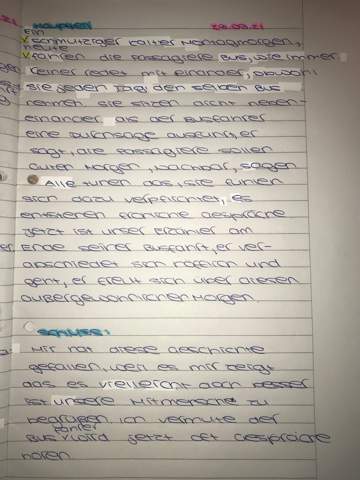 Hauptteil 28.09.21
Ein
schmutziger kalter Montagmorgen,
heute
fahren die Passagiere Bus, wie immer
keiner redet mit einander, obwohl
sie jeden Tag den selben Bus
nehmen sie sitzen dicht neben-
einander als der Busfahrer
eine Durchsage ausruft, er
sagt, die Passagiere sollen
Guten Morgen, Nachbar, sagen
Alle tuhen das, sie fühlen
sich dazu verpflichtet, es
entstehen fröhliche Gespräche
Jetzt ist unser Erzähler am
Ende seiner Busfahrt, er ver-
abschiedet sich höflich und
geht, er freut sich über diesen
außergewöhnlichen Morgen.
Schluss:
Mir hat diese Geschichte
gefallen, weil es mir zeigt
das es vielleicht doch besser
ist unsere Mitmensche zu
begrüßen. Ich vermute der
fahrer
Bus wird jetzt oft Gespräche
hören.